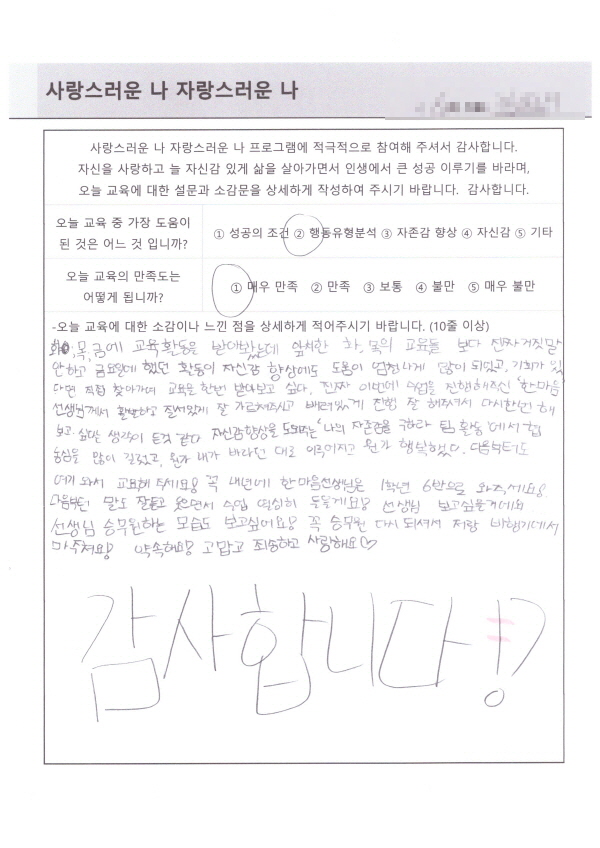 사랑스러운 나 자랑스러운 나
사랑스러운 나 자랑스러운 나 프로그램에 적극적으로 참여해 주셔서 감사합니다.
자신을 사랑하고 늘 자신감 있게 삶을 살아가면서 인생에서 큰 성공 이루기를 바라며,
오늘 교육에 대한 설문과 소감문을 상세하게 작성하여 주시기 바랍니다. 감사합니다.
오늘 교육 중 가장 도움이
된 것은 어느 것 입니까?
① 성공의 조건 ② 행동유형분석 ③ 자존감 향상 ④ 자신감 ⑤ 기타
오늘 교육의 만족도는
어떻게 됩니까?
① 매우 만족 ② 만족 ③ 보통 ④ 불만 ⑤ 매우 불만
-오늘 교육에 대한 소감이나 느낀 점을 상세하게 적어주시기 바랍니다. (10줄 이상)
목, 금에 교육활동을 받아봤는데 앞서한 화, 목의 교육들 보다 진짜 거짓말
안하고 금요일에 했던 활동이 자신감 향상에도 도움이 엄청나게 많이 되었고, 기회가 있
다면 직접 찾아가며 교육을 한번 받아보고 싶다. 진짜 이번에 수업을 진행해주신 '한마음'
선생님께서 활발하고 질서있게 잘 가르쳐주시고 배려있게 진행 잘 해주셔서 다시한번 해
보고 싶다는 생각이 든것 같다 자신감 향상을 도와주는 '나의 자존감을 구하라 팀 활동'에서 협
동심을 많이 길렀고, 뭔가 내가 바라던 대로 이루어지고 뭔가 행복했다. 다음부터도
여기 와서 교육해 주세요! 꼭 내년에 한마음선생님은 1학년 6반으로 와주세요!
다음부턴 말도 잘듣고 웃으면서 수업 열심히 들을게요! 선생님 보고싶을거에요
선생님 승무원하는 모습도 보고싶어요! 꼭 승무원 다시 되셔서 저랑 비행기에서
마주쳐요! 약속해요! 고맙고 죄송하고 사랑해요♡
감사합니다!